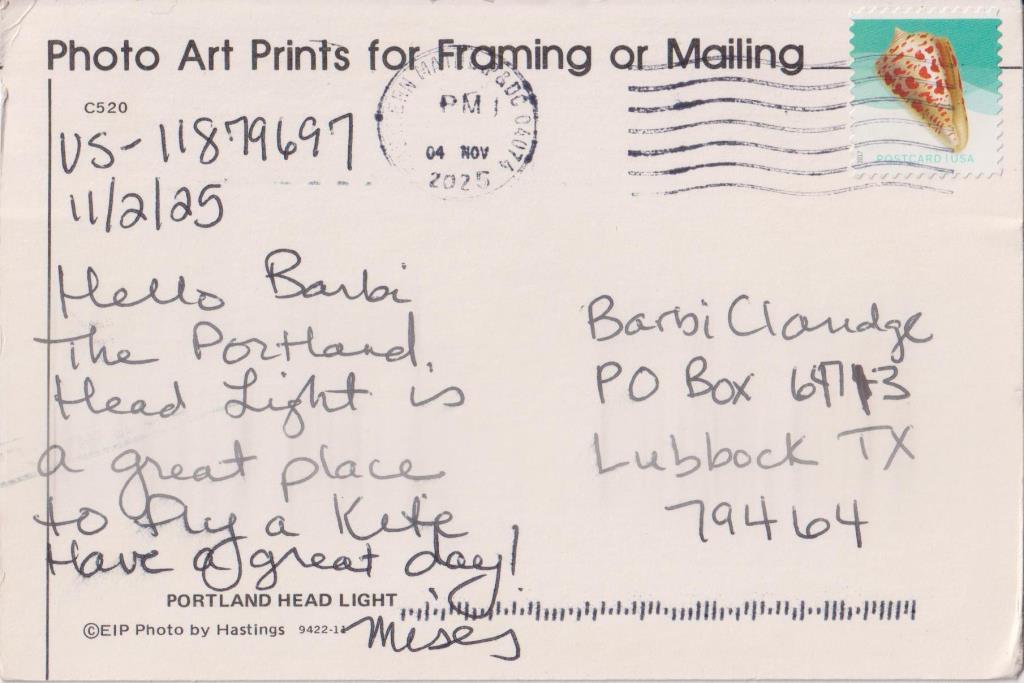 Photo Art Prints for Framing or Mailing
C520
US-11879697
11/2/25
PM 1
04 NOV
2025
04074
POSTCARD | USA
Hello Barbi
The Portland
Head Light is
a great place
to fly a Kite
Have a great day!
Barbi Claudge
PO Box
Lubbock TX
79464
PORTLAND HEAD LIGHT
©EIP Photo by Hastings 9422-11